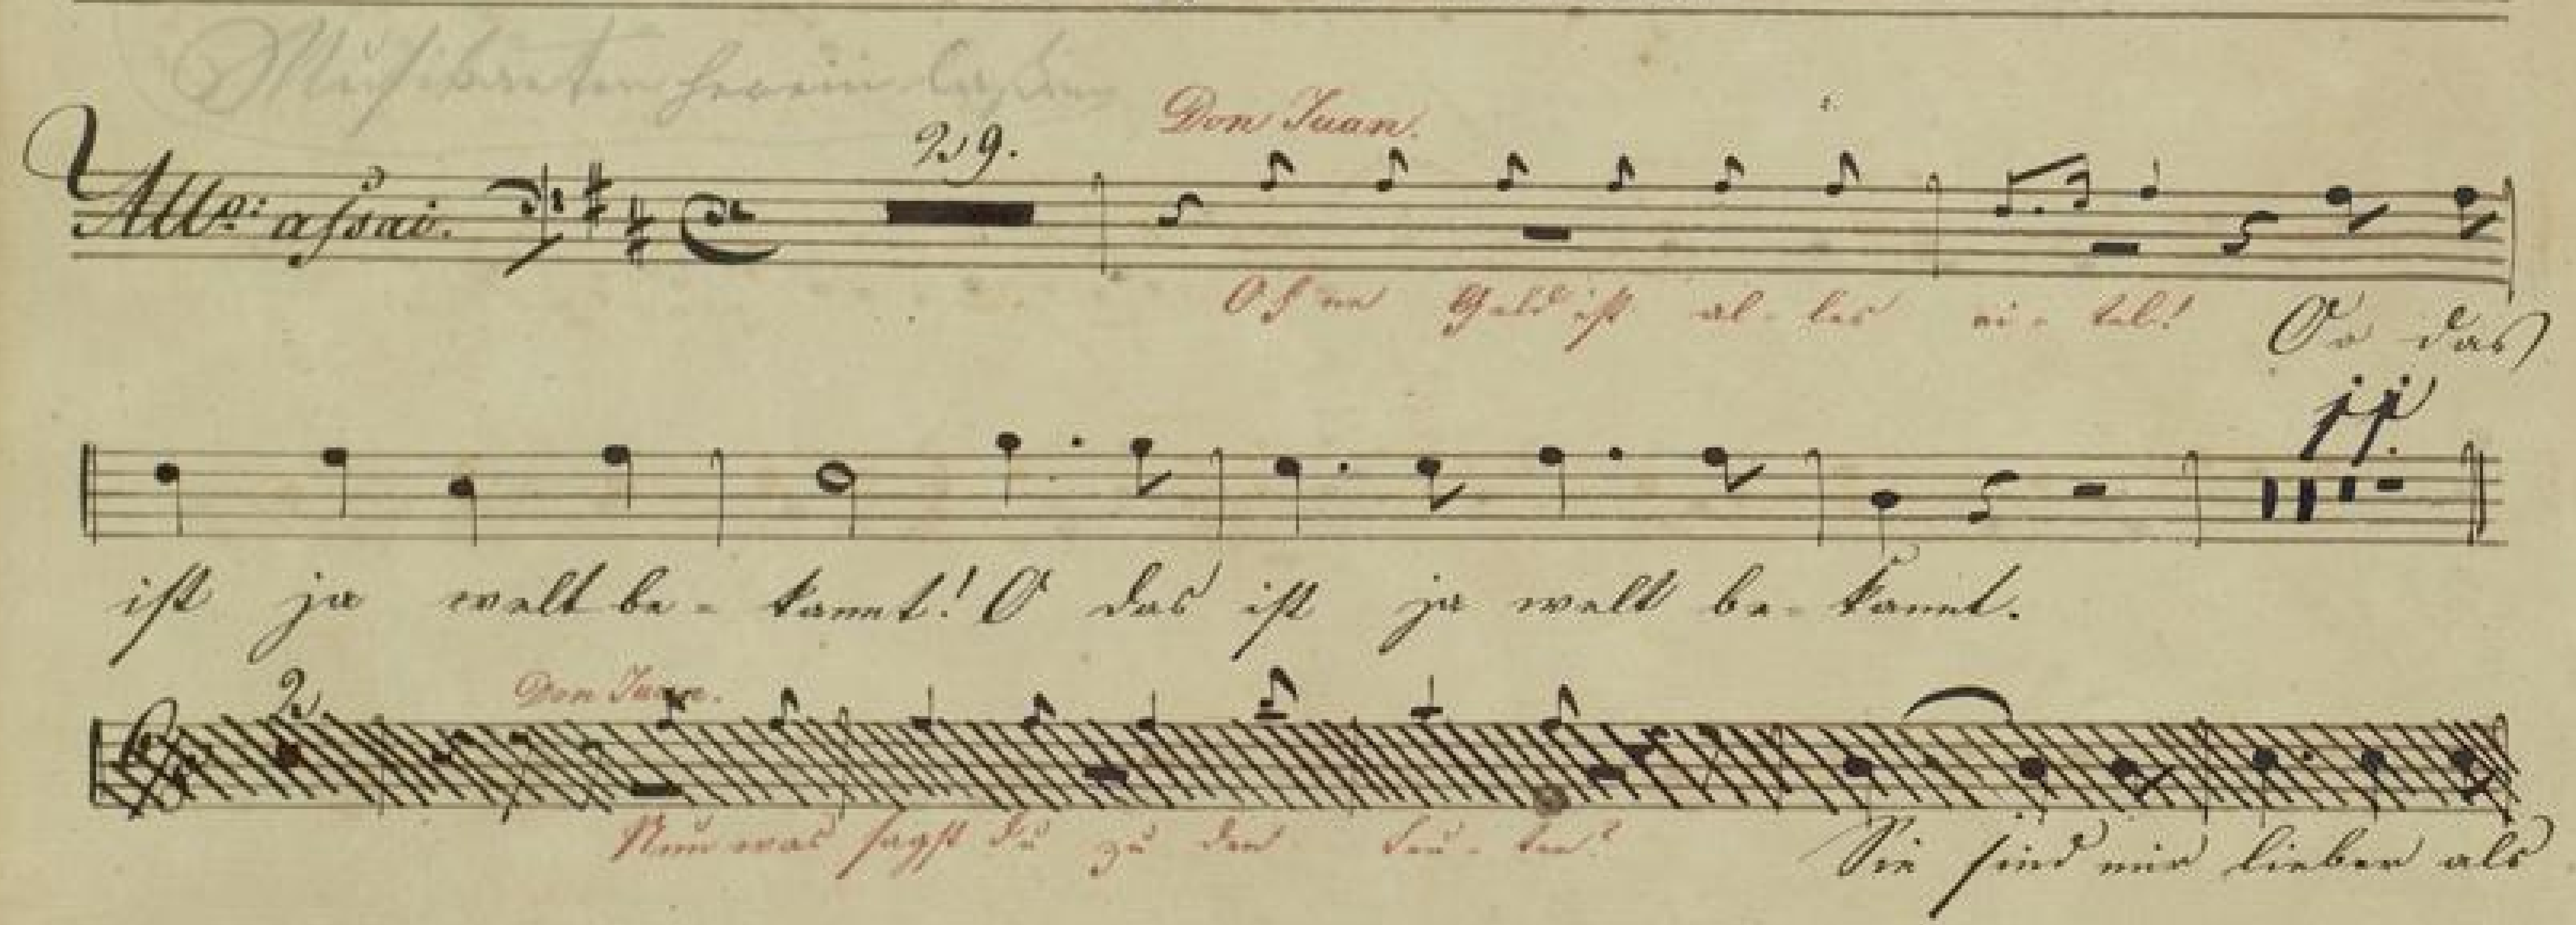 Musikanten herein
29.
Don Juan.
Allo: assai.
Ohne Geld ist al- les ei- tel! O das
ist ja welt be- kannt! O das ist ja welt be- kannt.
2.
Don Juan.
Nun was sagst du zu den Leu- ten? Sie sind mir lieber als